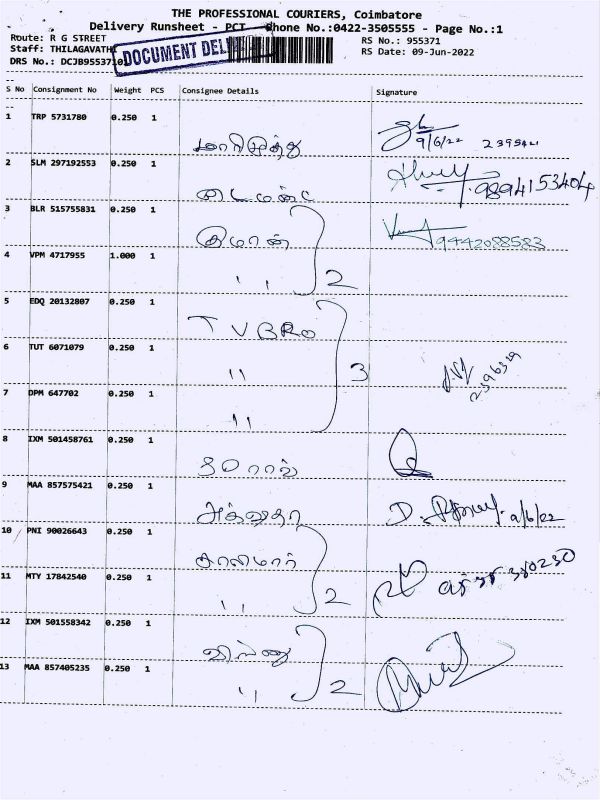 THE PROFESSIONAL COURIERS, Coimbatore
Delivery Runsheet - PCT - Phone No.:0422-3505555 - Page No.:1
Route: R G STREET
RS No.: 955371
Staff: THILAGAVATHI
RS Date: 09-Jun-2022
DRS No.: DCJB955371
DOCUMENT DEL
S No Consignment No Weight PCS Consignee Details Signature
1 TRP 5731780 0.250 1
மாரிமுத்து
9/6/22
2 SLM 297192553 0.250 1
டைமண்ட்
9894153404
3 BLR 515755831 0.250 1
9442088583
4 VPM 4717955 1.000 1
" 2
5 EDQ 20132807 0.250 1
T V BRO
6 TUT 6071079 0.250 1
" 3
2396329
7 DPM 647702 0.250 1
"
8 IXM 501458761 0.250 1
9 MAA 857575421 0.250 1
D. 9/6/22
10 PNI 90026643 0.250 1
11 MTY 17842540 0.250 1
" 2
380230
12 IXM 501558342 0.250 1
விஷ்ணு
13 MAA 857405235 0.250 1
" 2